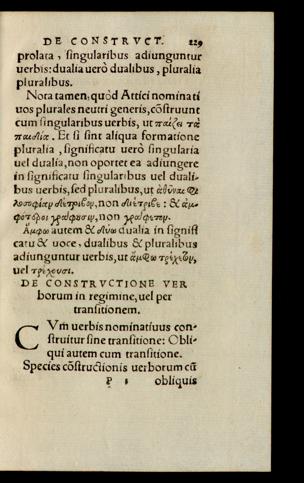 DE CONSTRVCT. 229
prolata, singularibus adiunguntur
uerbis: dualia uerò dualibus, pluralia
pluralibus.
Nota tamen, quòd Attici nominati
uos plurales neutri generis, cõstruunt
cum singularibus uerbis, ut παίζει τὰ
παιδία. Et si sint aliqua formatione
pluralia, significatu uerò singularia
uel dualia, non oportet ea adiungere
in significatu singularibus uel duali-
bus uerbis, sed pluralibus, ut ἀθῆναι φι
λοσοφίαν διέτριβον, non διέτριβε: & ἀμ-
φότεροι γράφουσιν, non γράφετον.
Ἄμφω autem & δύω dualia in signifi
catu & uoce, dualibus & pluralibus
adiunguntur uerbis, ut ἄμφω τρέχετον,
uel τρέχουσι.
DE CONSTRVCTIONE VER
borum in regimine, uel per
transitionem.
CVm uerbis nominatiuus con-
struitur sine transitione: Obli-
qui autem cum transitione.
Species cõstructionis uerborum cũ
P obliquis